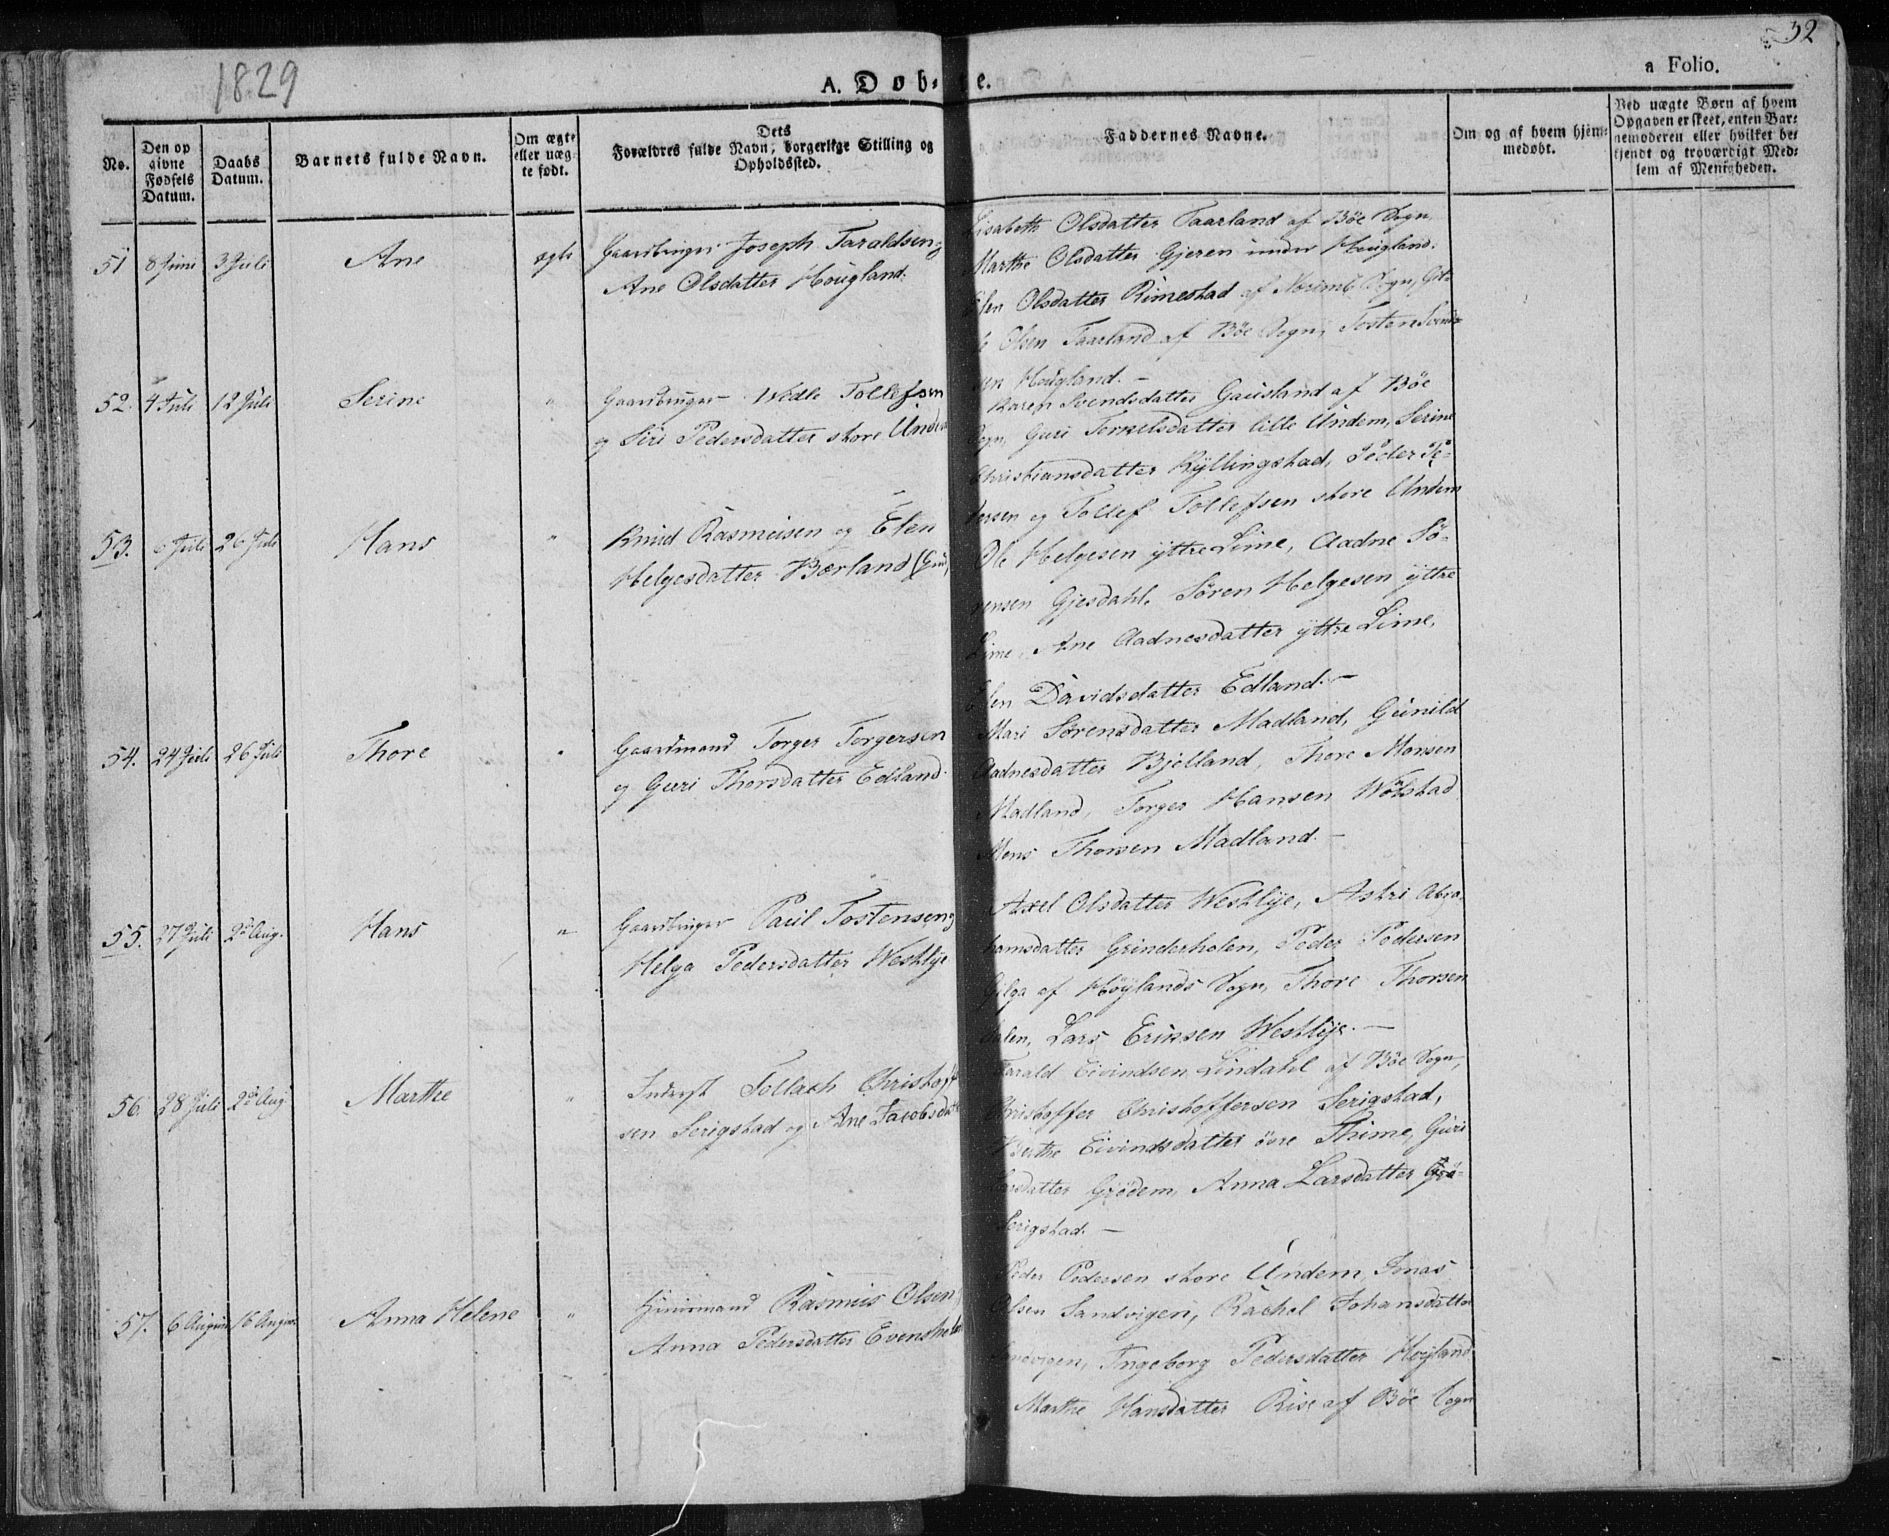 1829
32
A. Døb-te.
a Folio.
No.
Den op
givne
Fødsels
Datum.
Daabs
Datum.
Barnets fulde Navn.
Om ægte
eller uæg-
te født.
Dets
Forældres fulde Navn, borgerlige Stilling og
Opholdssted.
Faddernes Navne.
Om og af hvem hjem-
medøbt.
Ved uægte Børn af hvem
Opgaven er skeet, enten Bar-
nemoderen eller hvilket be-
kjendt og troværdigt Med-
lem af Menigheden.
51 8 Juni 3 Juli Ane ægte Gaardbruger Joseph Taraldsen og
Ane Olsdatter Hougland.
Lisabeth Olsdatter Taarland af Bøe Sogn,
Marthe Olsdatter Gjeren under Hougland.
Elen Olsdatter Rimestad af Sogn,
Olsen Taarland af Bøe Sogn, Tosten Svend-
sen Hougland. —
52. 4 Juli 12 Juli Serine " Gaardbruger Wedle Tollefsen
og Siri Pedersdatter store Undem
Karen Svendsdatter Gausland af Bøe
Sogn, Guri Torkelsdatter litle Undem, Serine
Christiansdatter Kyllingstad, Peder Pe-
dersen og Tollef Tollefsen store Undem
53. 6 Juli 26 Juli Hans " Knud Rasmusen og Elen
Helgesdatter Bærland
Ole Helgesen yttre Lime, Aadne Sø-
rensen Gjesdahl, Søren Helgesen yttre
Lime, Ane Aadnesdatter yttre Lime,
Elen Davidsdatter Edland. —
54. 24 Juli 26 Juli Thore " Gaardmand Torger Torgersen
og Guri Thorsdatter Edland.
Mari Sørensdatter Madland, Gunild
Aadnesdatter Bjelland, Thore Monsen
Madland, Torger Hansen Wølstad
Mons Thorsen Madland. —
55. 27 Juli 2 Aug. Hans " Gaardbruger Paul Tostensen og
Helga Pedersdatter Westlye
Axel Olsdatter Westlye, Astri Abra-
hamsdatter Grinderholen, Peder Pedersen
Gilga af Høylands Sogn, Thore Thorsen
Lars Erichsen Westlye. —
56. 28 Juli 2 Aug. Marthe " Inderst Tollach Christoff-
sen Serigstad og Ane Jacobsdatter
Tarald Eivindsen Lindahl af Bøe Sogn,
Christoffer Christoffersen Serigstad,
Berthe Eivindsdatter øvre Thime, Guri
Larsdatter Grødem, Anna Larsdatter
Serigstad. —
57. 6 August 16 August Anna Helene " Huusmand Rasmus Olsen
Anna Pedersdatter
Peder Pedersen store Undem, Jonas
Olsen Sandvigen, Rachel Johansdatter
Sandvigen, Ingeborg Pedersdatter Hogland
Marthe Hansdatter Rise af Bøe Sogn